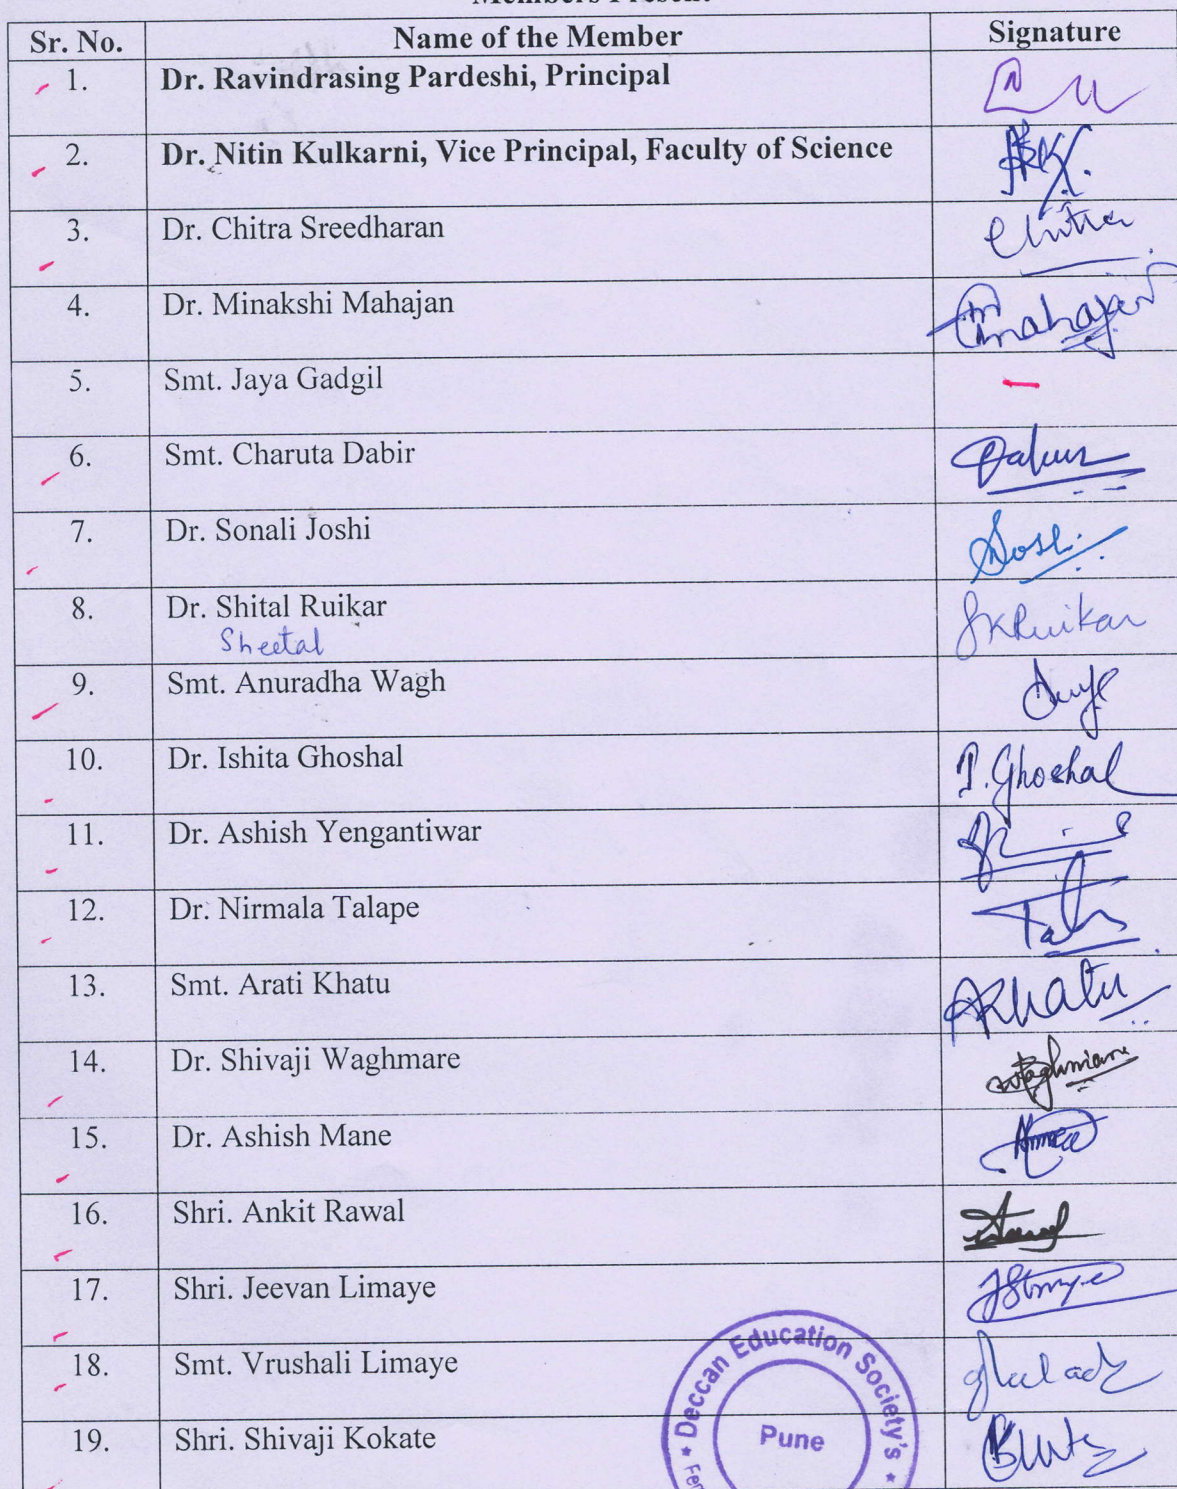 Members Present
Sr. No. Name of the Member Signature
1. Dr. Ravindrasing Pardeshi, Principal
2. Dr. Nitin Kulkarni, Vice Principal, Faculty of Science
3. Dr. Chitra Sreedharan Chitra
4. Dr. Minakshi Mahajan Mahajan
5. Smt. Jaya Gadgil —
6. Smt. Charuta Dabir
7. Dr. Sonali Joshi
8. Dr. Shital Ruikar SKRuikar
Sheetal
9. Smt. Anuradha Wagh
10. Dr. Ishita Ghoshal I. Ghoshal
11. Dr. Ashish Yengantiwar
12. Dr. Nirmala Talape
13. Smt. Arati Khatu AKhatu
14. Dr. Shivaji Waghmare Waghmare
15. Dr. Ashish Mane
16. Shri. Ankit Rawal
17. Shri. Jeevan Limaye
18. Smt. Vrushali Limaye
19. Shri. Shivaji Kokate
Deccan Education Society's
Pune